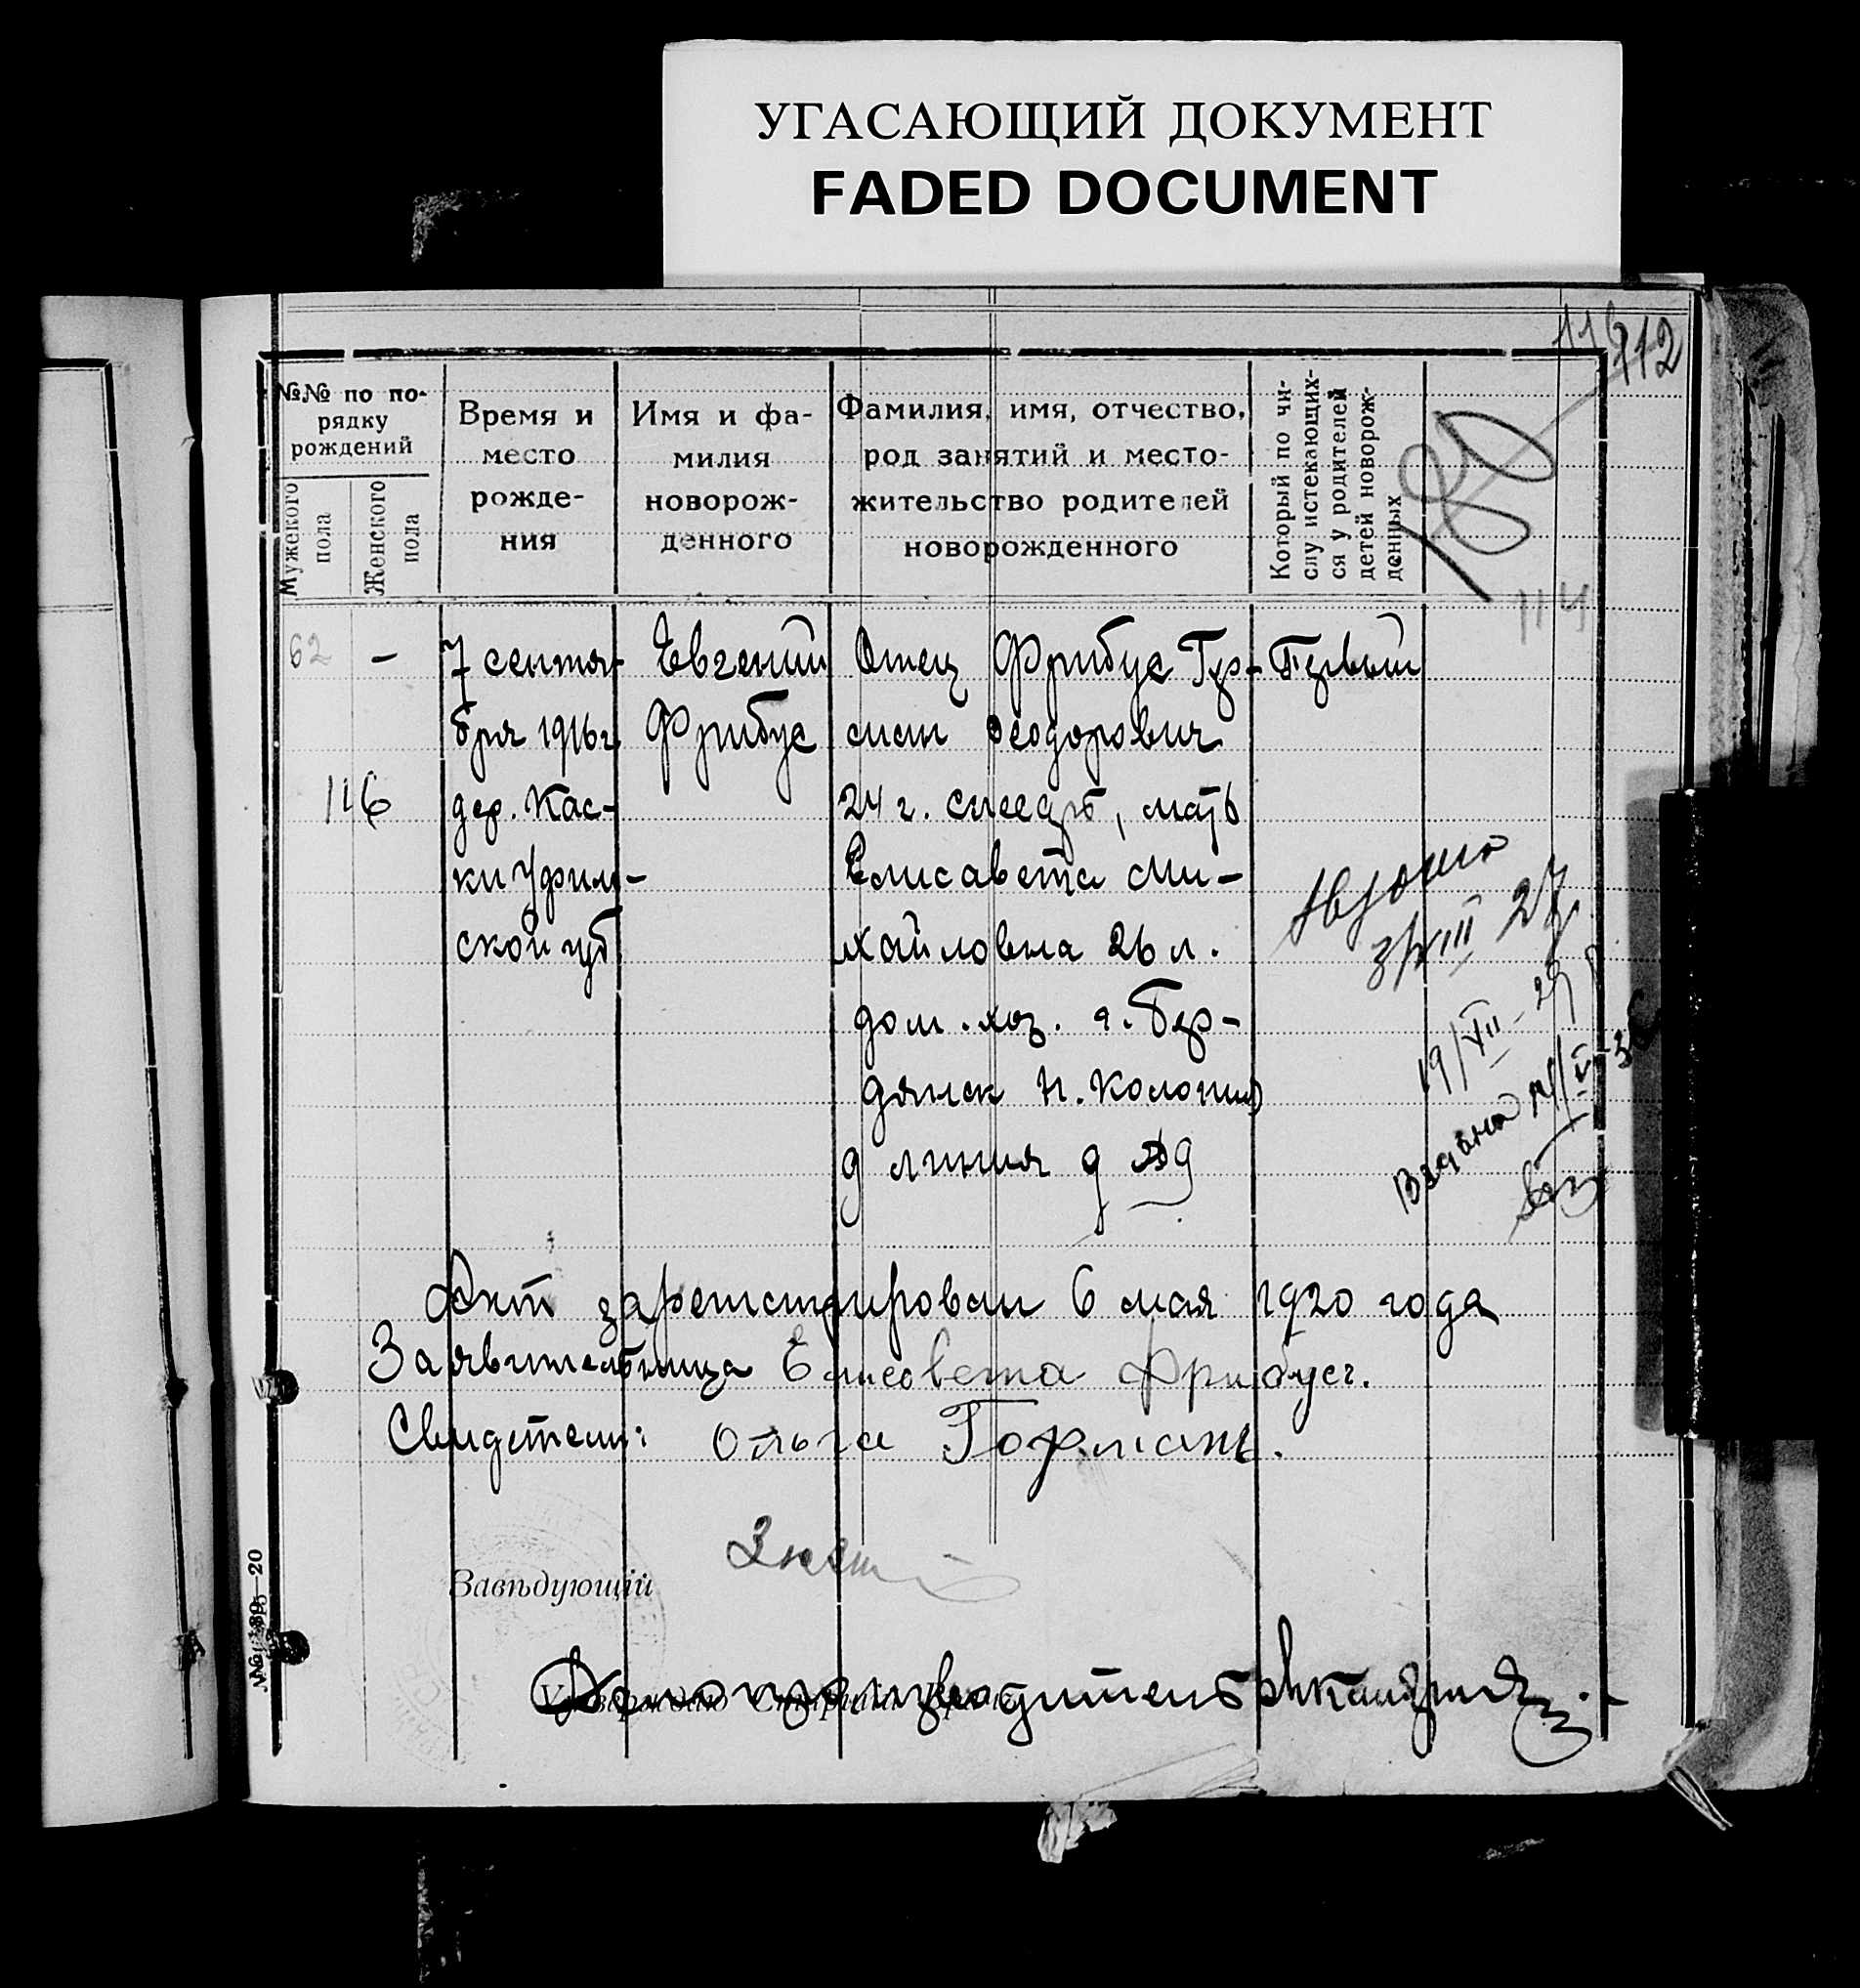 УГАСАЮЩИЙ ДОКУМЕНТ
FADED DOCUMENT
112
№№ по по-
рядку
рождений
Мужеского
пола
Женского
пола
Время и
место
рожде-
ния
Имя и фа-
милия
новорож-
денного
Фамилия, имя, отчество,
род занятий и место-
жительство родителей
новорожденного
Который по чи-
слу истекающих-
ся у родителей
детей новорож-
денных
180
114
62
–
7 сентя-
бря 1916 г.
дер. Кас-
ки Уфим-
ской губ
116
Евгений
Фрибус
Отец Фрибус Гер-
ман Феодорович
24 г. , мать
Елисавета Ми-
хайловна 26 л.
дом. хоз. г. Бер-
дянск Н. Колония
9 линия д
Первый
27
19/VII - 29
Выдана
Акт зарегистрирован 6 мая 1920 года
Заявительница Елисовета Фрибус.
Свидетели: Ольга Горманъ.
Завѣдующій
Делопроизводитель